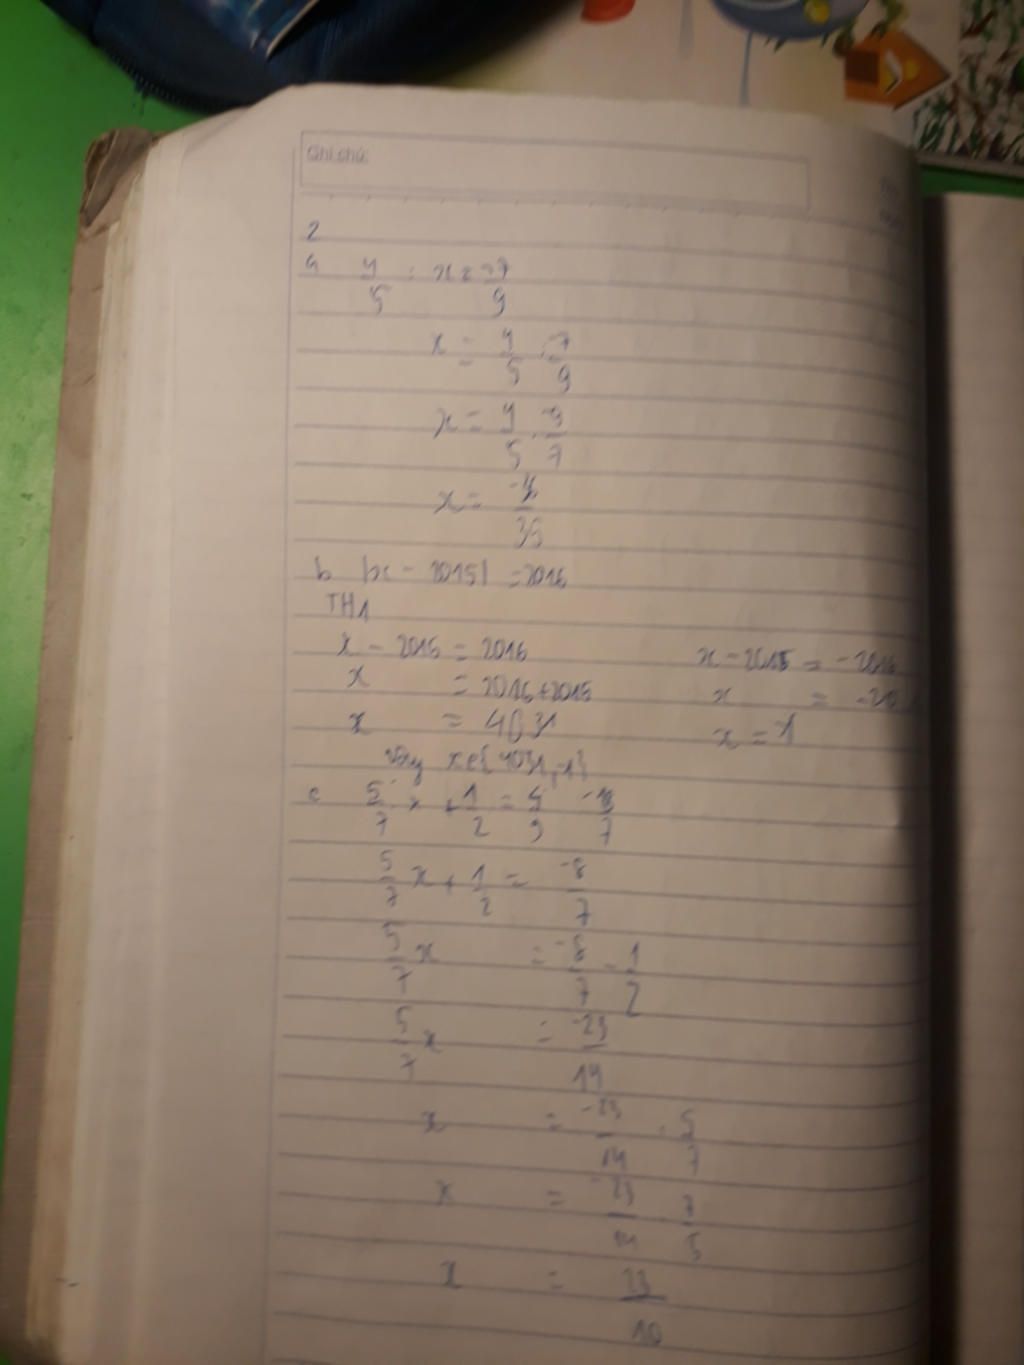 Ghi chú:
2
a 4/5 : x = -7/9
x = 4/5 : -7/9
x = 4/5 . -9/7
x = /35
b |x - 2015| = 2016
TH1
x - 2015 = 2016 x - 2015 = -2016
x = 2016 + 2015 x =
x = 4031 x = -1
Vậy x ∈ {4031, -1}
c 5/7 x + 1/2 =
5/7 x + 1/2 = -8/7
5/7 x = -8/7 - 1/2
5/7 x = -23/14
x = -23/14 : 5/7
x = -23/14 . 7/5
x = 23/10